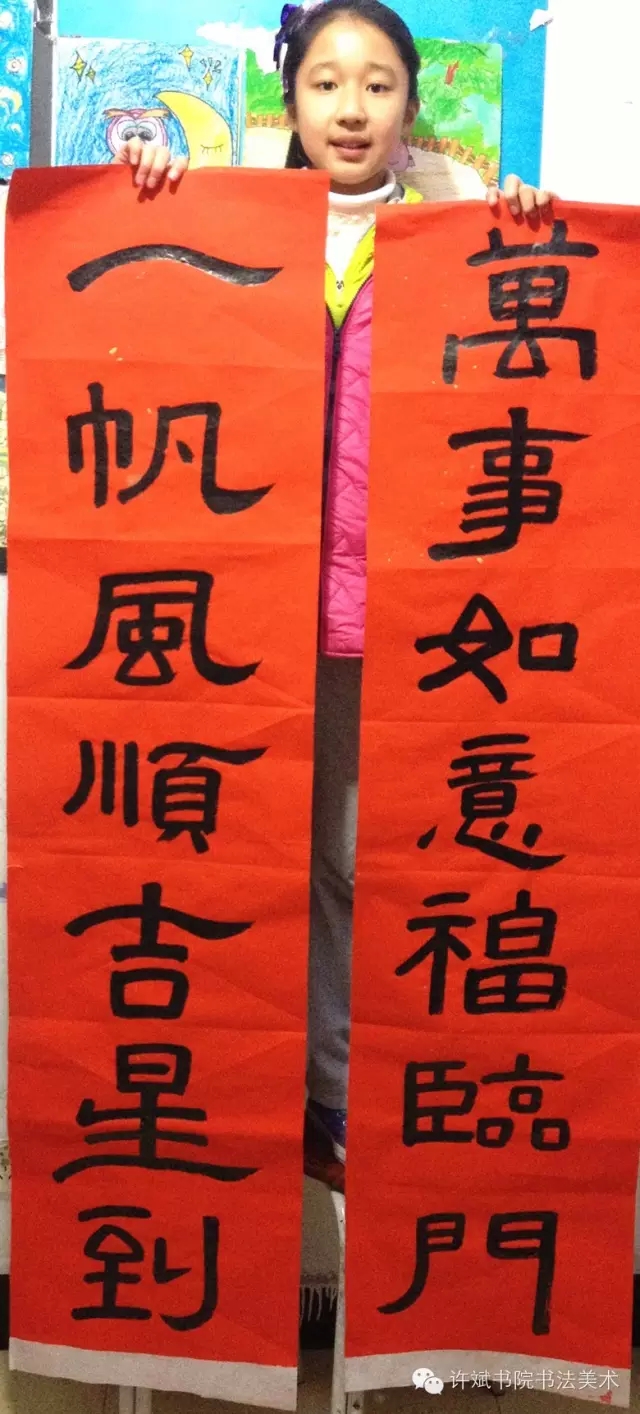 萬事如意福臨門
一帆風順吉星到
许斌书院书法美术